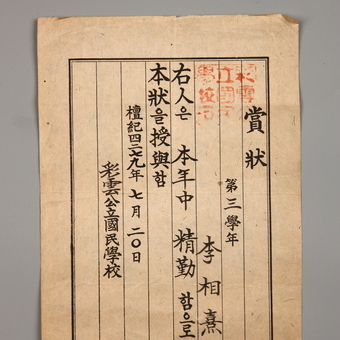 賞狀
第三學年
李相熹
右人은 本年中 精勤 함으로
本狀을 授與함
檀紀四二七九年 七月 二〇日
彩雲公立國民學校